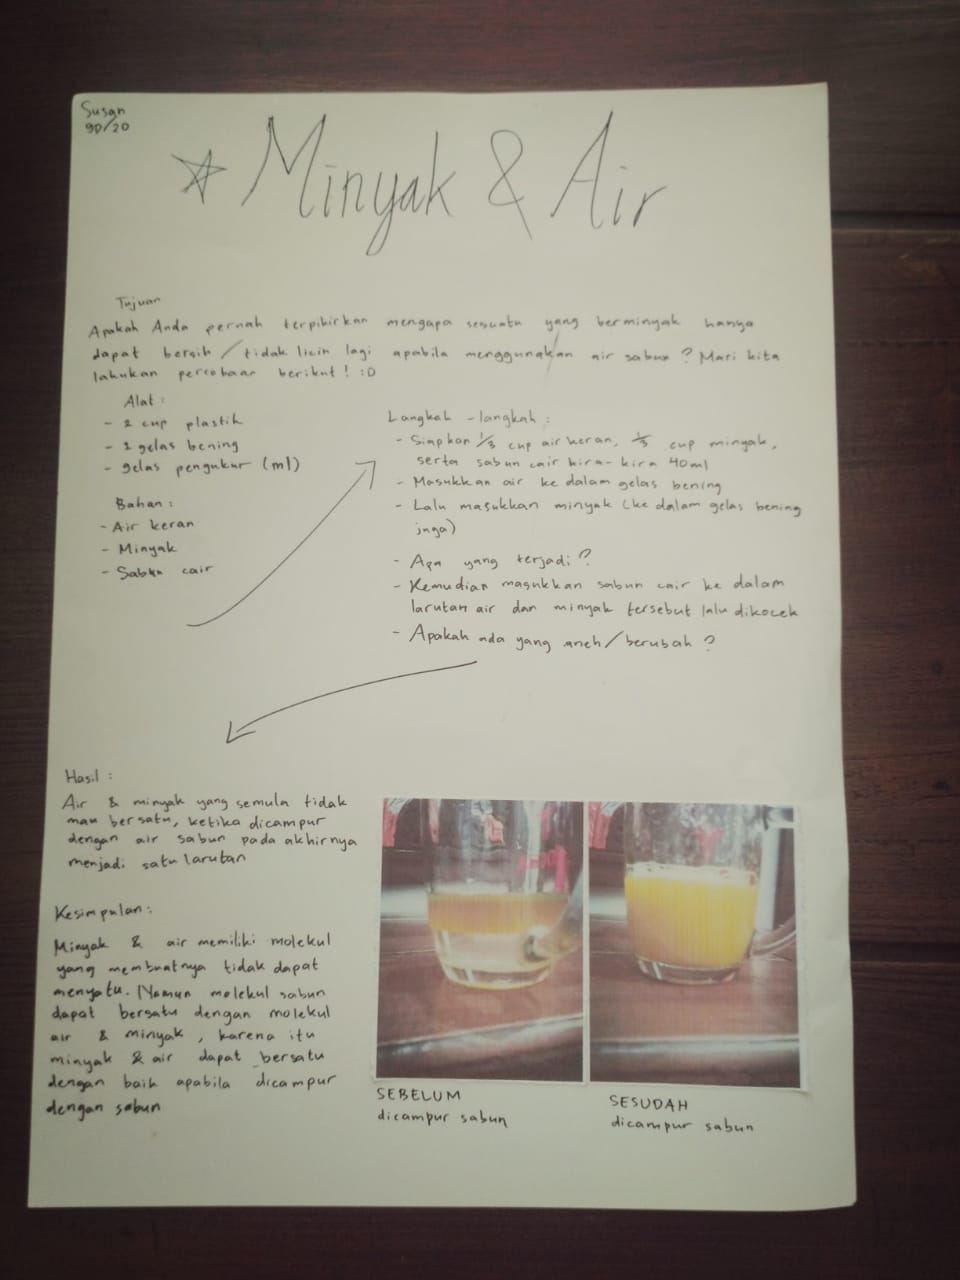 Susan
9D/20
Minyak & Air
Tujuan
Apakah Anda pernah terpikirkan mengapa sesuatu yang berminyak hanya
dapat bersih / tidak licin lagi apabila menggunakan air sabun ? Mari kita
lakukan percobaan berikut ! :D
Alat :
- 2 cup plastik
- 1 gelas bening
- gelas pengukur (ml)
Bahan :
- Air keran
- Minyak
- Sabun cair
Langkah - langkah :
- Siapkan 1/3 cup air keran, 1/3 cup minyak,
serta sabun cair kira - kira 40ml
- Masukkan air ke dalam gelas bening
- Lalu masukkan minyak (ke dalam gelas bening
juga)
- Apa yang terjadi ?
- Kemudian masukkan sabun cair ke dalam
larutan air dan minyak tersebut lalu dikocek
- Apakah ada yang aneh / berubah ?
Hasil :
Air & minyak yang semula tidak
mau bersatu, ketika dicampur
dengan air sabun pada akhirnya
menjadi satu larutan
Kesimpulan :
Minyak & air memiliki molekul
yang membuatnya tidak dapat
menyatu. Namun molekul sabun
dapat bersatu dengan molekul
air & minyak , karena itu
minyak & air dapat bersatu
dengan baik apabila dicampur
dengan sabun
SEBELUM
dicampur sabun
SESUDAH
dicampur sabun